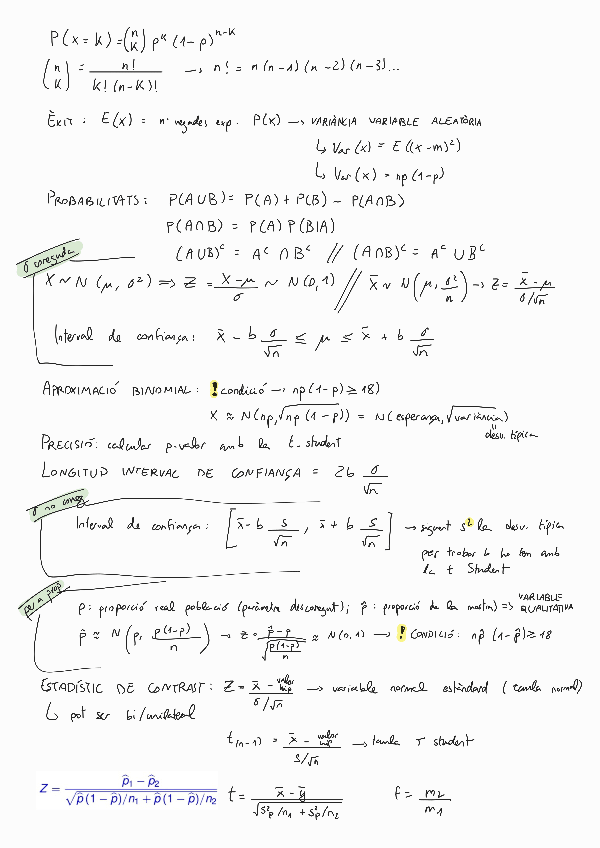 P(x = k) = (n k) p^k (1-p)^(n-k)
(n k) = n! / k! (n-k)! → n! = n (n-1) (n-2) (n-3)...
Èxit: E(x) = nº vegades exp. P(x) → VARIÀNCIA VARIABLE ALEATÒRIA
↳ Var(x) = E((x-m)²)
↳ Var(x) = np(1-p)
PROBABILITATS: P(A∪B) = P(A) + P(B) - P(A∩B)
P(A∩B) = P(A) P(B|A)
(A∪B)^c = A^c ∩ B^c // (A∩B)^c = A^c ∪ B^c
σ coneguda
X ~ N(μ, σ²) ⇒ Z = (X-μ)/σ ~ N(0,1) // x̄ ~ N(μ, σ²/n) → Z = (x̄-μ)/(σ/√n)
Interval de confiança: x̄ - b σ/√n ≤ μ ≤ x̄ + b σ/√n
APROXIMACIÓ BINOMIAL: ! condició → np(1-p) ≥ 18)
X ≈ N(np, √np(1-p)) = N(esperança, √variància)
desv. típica
PRECISIÓ: calcular p-valor amb la t-student
LONGITUD INTERVAL DE CONFIANÇA = 2b σ/√n
σ no coneg
Interval de confiança: [x̄ - b s/√n, x̄ + b s/√n] → siguent s² la desv. típica
per trobar b ho fem amb
la t Student
per a prop
p: proporció real població (paràmetre desconegut); p̂: proporció de la mostra) ⇒ VARIABLE QUALITATIVA
p̂ ≈ N(p, p(1-p)/n) → Z = (p̂-p)/√(p(1-p)/n) ≈ N(0,1) → ! CONDICIÓ: np̂(1-p̂) ≥ 18
ESTADÍSTIC DE CONTRAST: Z = (x̄ - valor hip)/(σ/√n) → variable normal estàndard (taula normal)
↳ pot ser bi/unilateral
t(n-1) = (x̄ - valor hip)/(s/√n) → taula T student
Z = (p̂₁ - p̂₂)/√(p̂(1-p̂)/n₁ + p̂(1-p̂)/n₂) t = (x̄ - ȳ)/√(s²p/n₁ + s²p/n₂) f = m₂/m₁